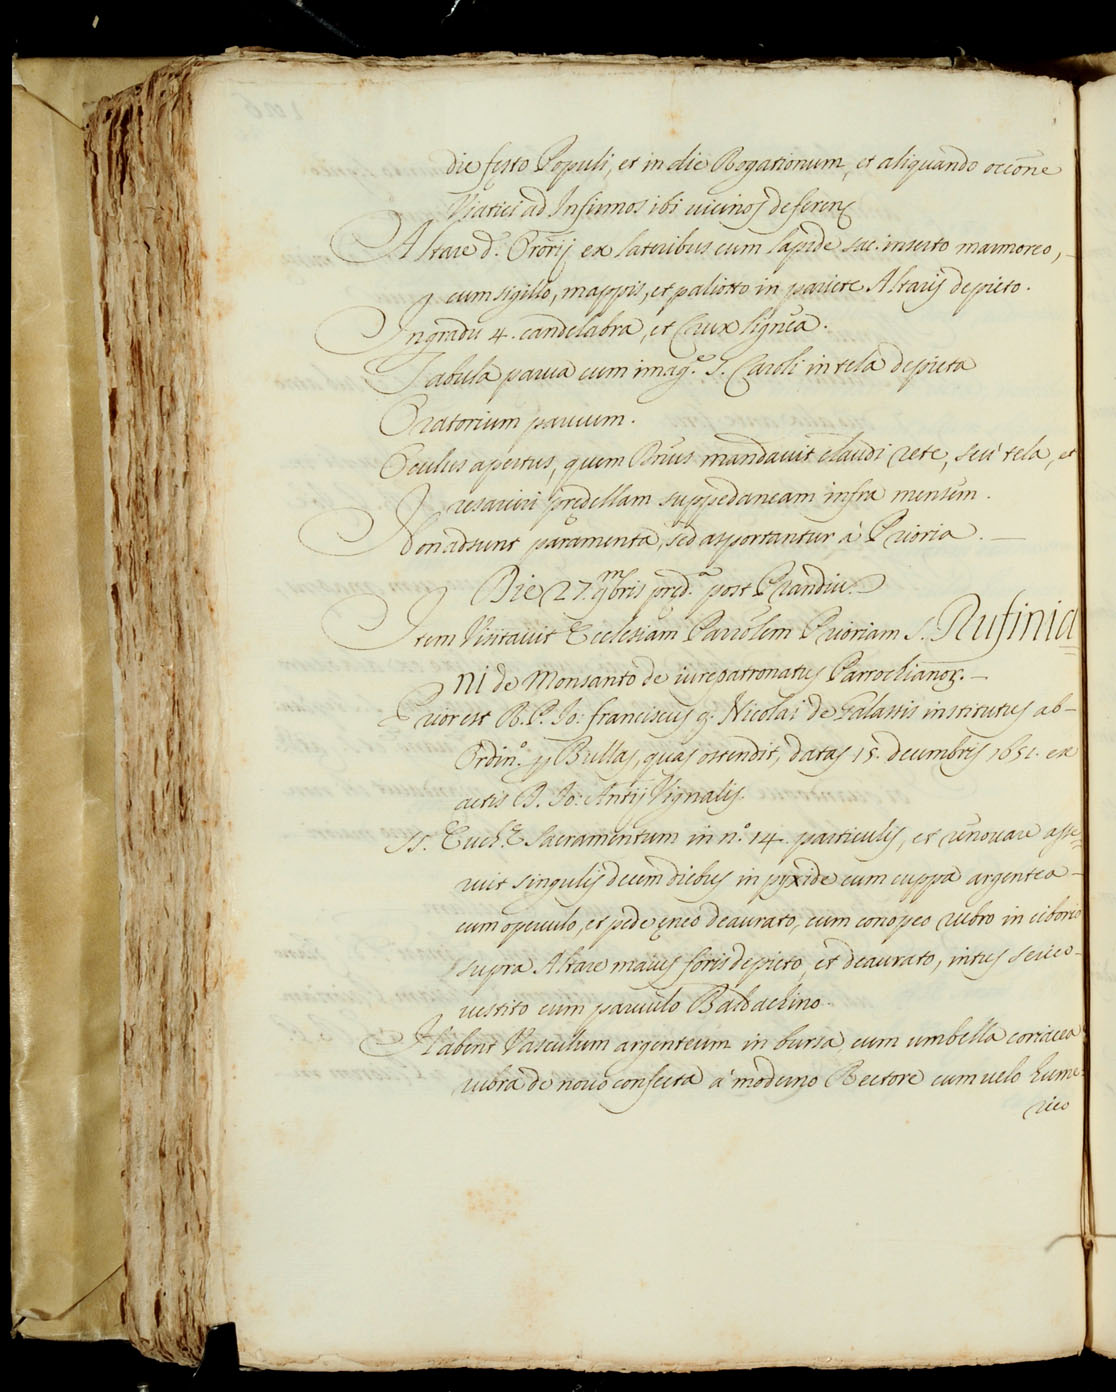 die festo Populi, et in die Rogationum, et aliquando occõne
Viatici ad Infirmos ibi uicinos deferen̄
Altare d.º Orõrij ex lateribus cum lapide sac. inserto marmoreo,
cum sigillo, mappis, et paliotto in pariete Altaris depicto.
In gradu 4. candelabra, et Crux lignea.
Tabula parua cum imag.e S. Caroli in tela depicta
Oratorium paruum.
Oculus apertus, quem Dñus mandauit claudi rete, seù tela, et
resarciri prędellam suppedaneam infra mensem.
Non adsunt paramenta, sed asportantur à Prioria. —
Die 27. mbris pred.a post Prandiũ
Item Visitauit Ecclesiam Parrõlem Prioriam S. Rufinia=
ni de Monsanto de iurepatronatus Parrochianoꝝ. —
Prior est R. P. Jo: franciscus q. Nicolai de Falassis institutus ab-
Ordin.º ꝑ Bullas, quas ostendit, datas 15. decembris 1651. ex
actis D. Jo: Antij Vignalis.
SS. Euch.æ Sacramentum in n.º 14. particulis, et renouare asse=
ruit singulis decem diebus in pyxide cum cuppa argentea-
cum operculo, et pede ęneo deaurato, cum conopeo rubro in ciborio
supra Altare maius foris depicto, et deaurato, intus serico-
uestito cum paruulo Baldachino.
Habent Vasculum argenteum in bursa, cum umbella coriacea
rubra de nouo confecta à moderno Rectore cum uelo hume=